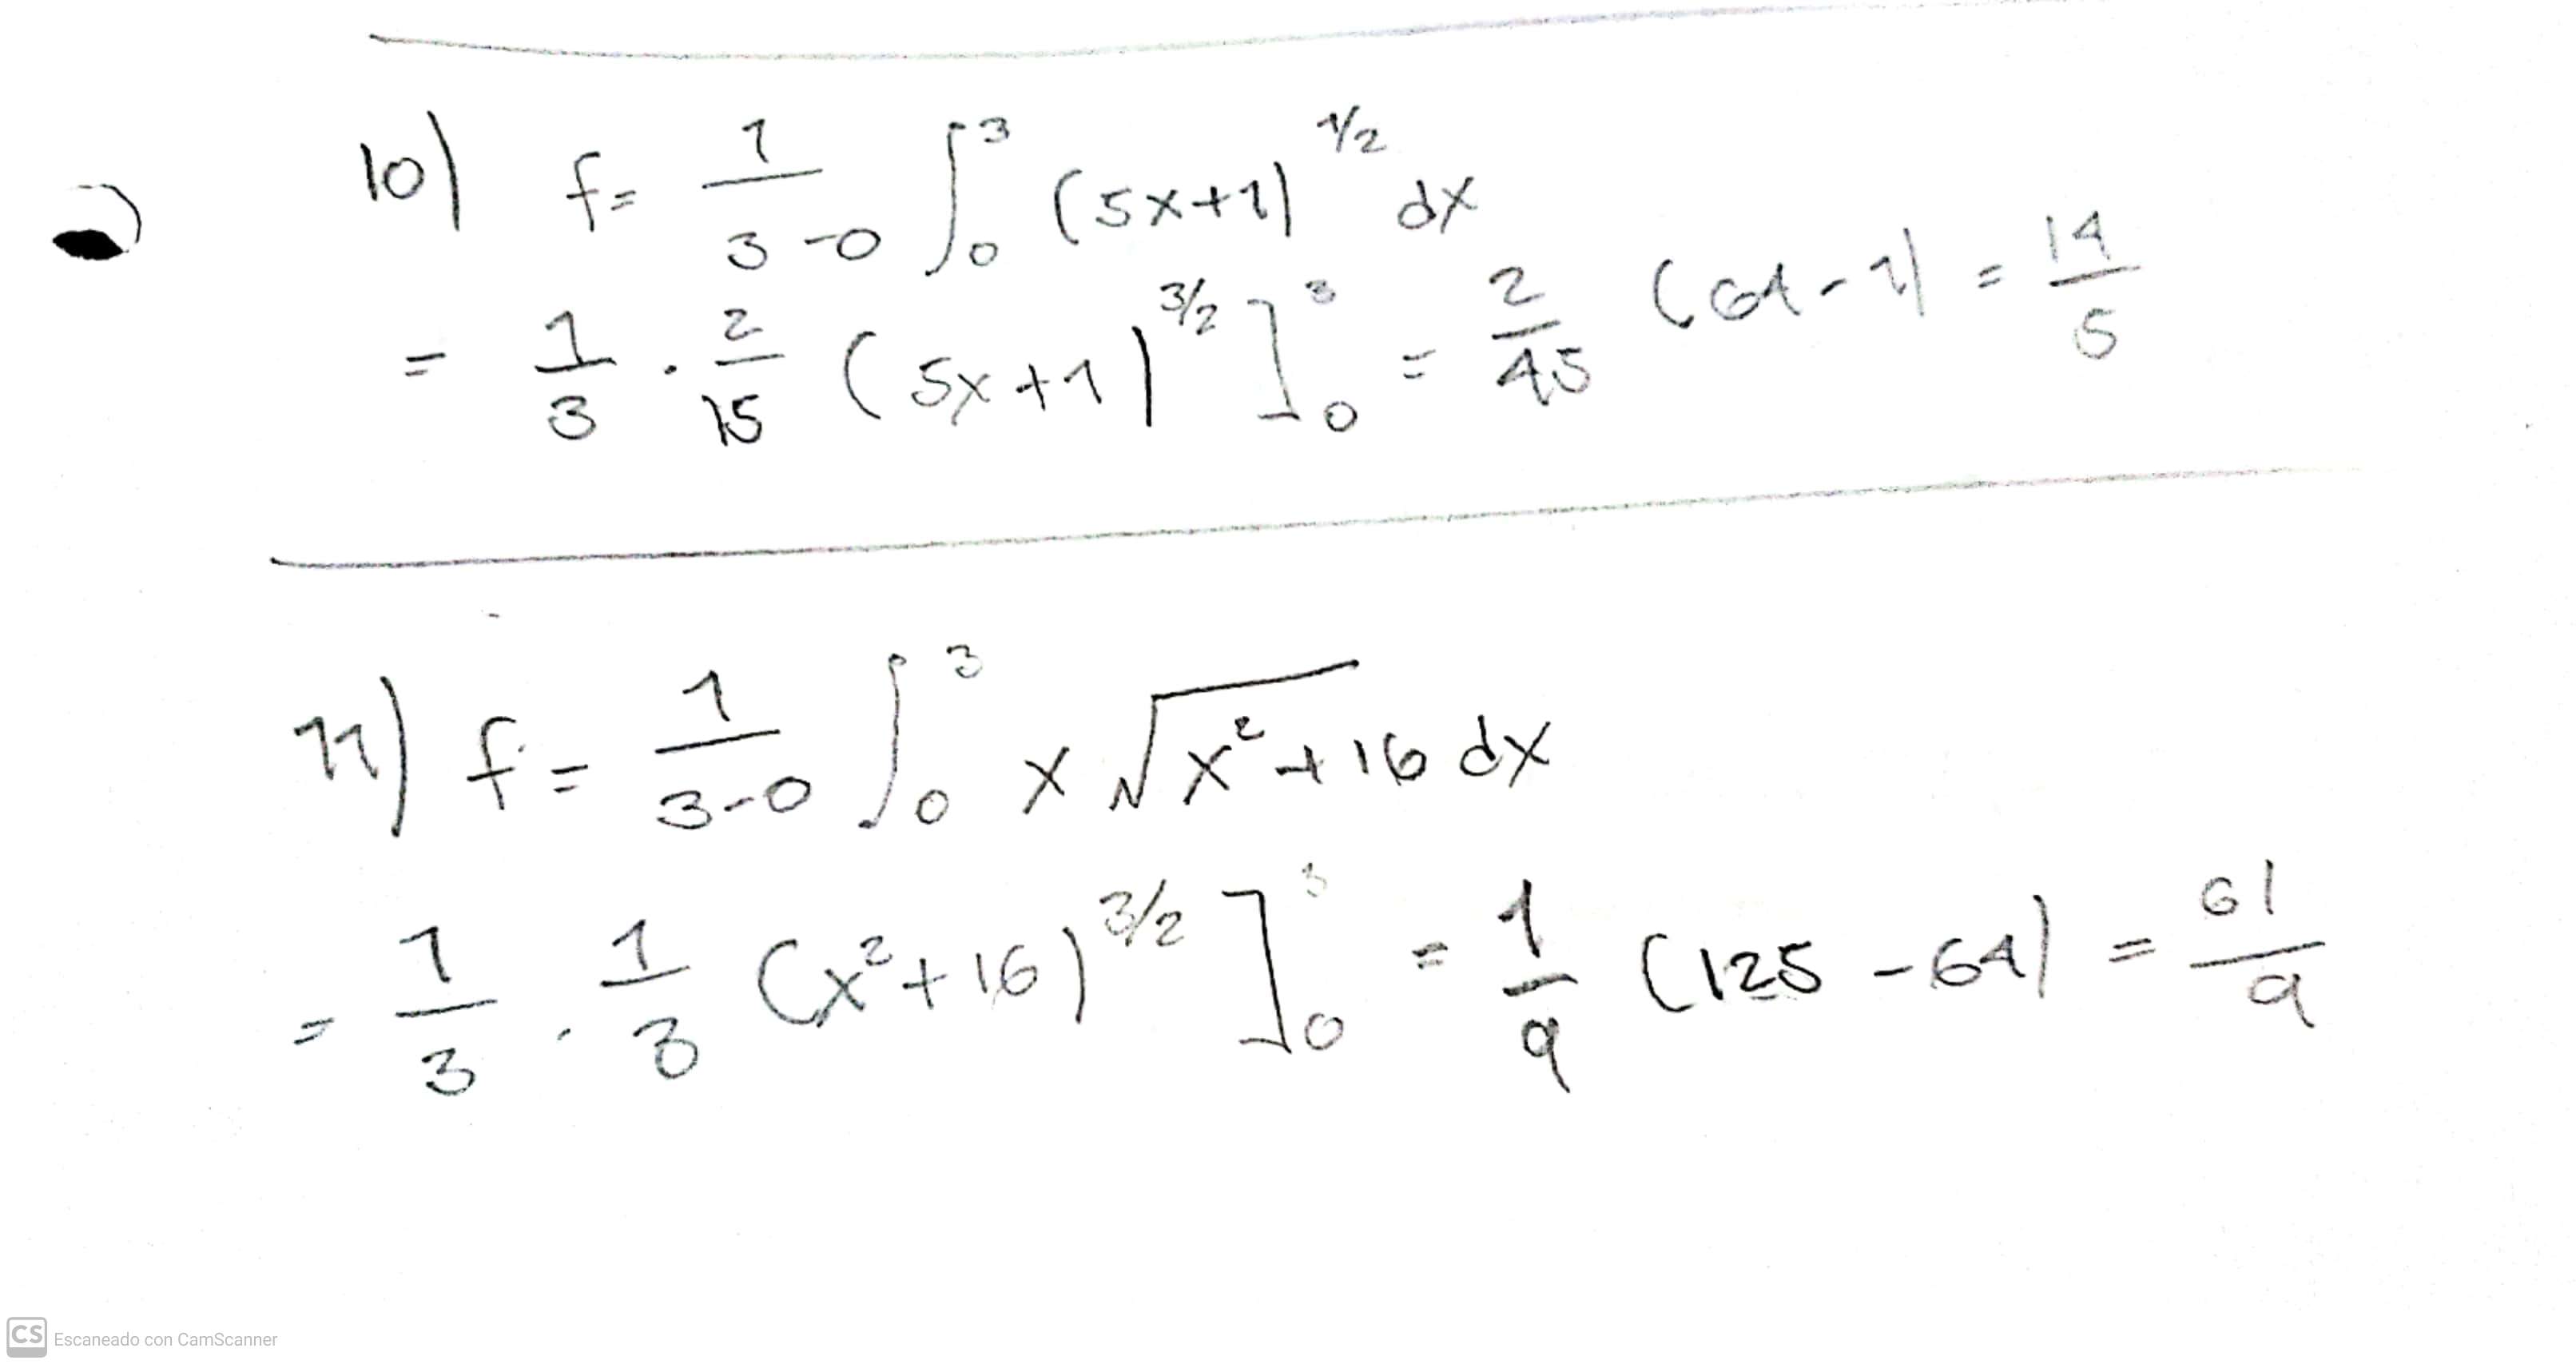 10) f = 1/(3-0) ∫₀³ (5x+1)^(1/2) dx
= 1/3 · 2/15 (5x+1)^(3/2) ]₀³ = 2/45 (64-1) = 14/5
11) f = 1/(3-0) ∫₀³ x √(x²+16) dx
= 1/3 · 1/3 (x²+16)^(3/2) ]₀³ = 1/9 (125-64) = 61/9
CS Escaneado con CamScanner